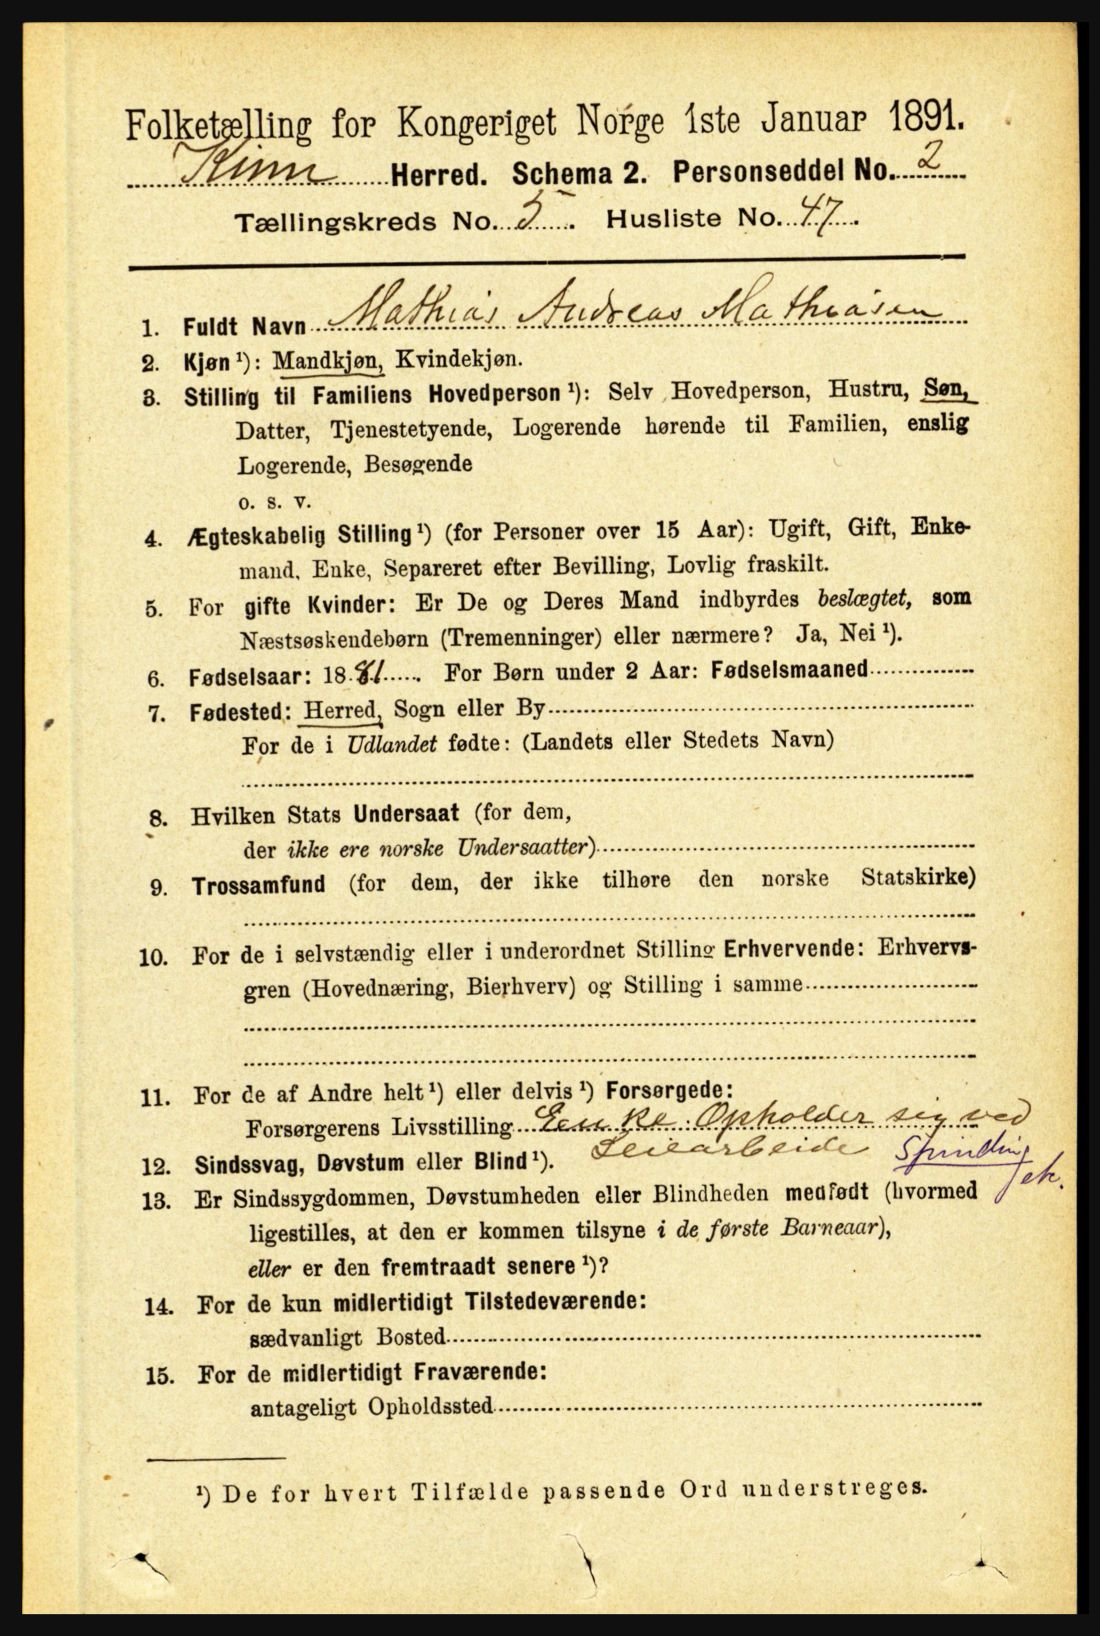 Folketælling for Kongeriget Norge 1ste Januar 1891.
Kinn Herred. Schema 2. Personseddel No. 2
Tællingskreds No. 5. Husliste No. 47.
1. Fuldt Navn Mathias Andreas Mathiasen
2. Kjøn ¹): Mandkjøn, Kvindekjøn.
3. Stilling til Familiens Hovedperson ¹): Selv Hovedperson, Hustru, Søn,
Datter, Tjenestetyende, Logerende hørende til Familien, enslig
Logerende, Besøgende
o. s. v.
4. Ægteskabelig Stilling ¹) (for Personer over 15 Aar): Ugift, Gift, Enke-
mand, Enke, Separeret efter Bevilling, Lovlig fraskilt.
5. For gifte Kvinder: Er De og Deres Mand indbyrdes beslægtet, som
Næstsøskendebørn (Tremenninger) eller nærmere? Ja, Nei ¹).
6. Fødselsaar: 1881. For Børn under 2 Aar: Fødselsmaaned
7. Fødested: Herred, Sogn eller By
For de i Udlandet fødte: (Landets eller Stedets Navn)
8. Hvilken Stats Undersaat (for dem,
der ikke ere norske Undersaatter)
9. Trossamfund (for dem, der ikke tilhøre den norske Statskirke)
10. For de i selvstændig eller i underordnet Stilling Erhvervende: Erhvervs-
gren (Hovednæring, Bierhverv) og Stilling i samme
11. For de af Andre helt ¹) eller delvis ¹) Forsørgede:
Forsørgerens Livsstilling Enke. Opholder sig ved
Leiearbeide Spinding
12. Sindssvag, Døvstum eller Blind ¹).
etc.
13. Er Sindssygdommen, Døvstumheden eller Blindheden medfødt (hvormed
ligestilles, at den er kommen tilsyne i de første Barneaar),
eller er den fremtraadt senere ¹)?
14. For de kun midlertidigt Tilstedeværende:
sædvanligt Bosted
15. For de midlertidigt Fraværende:
antageligt Opholdssted
¹) De for hvert Tilfælde passende Ord understreges.